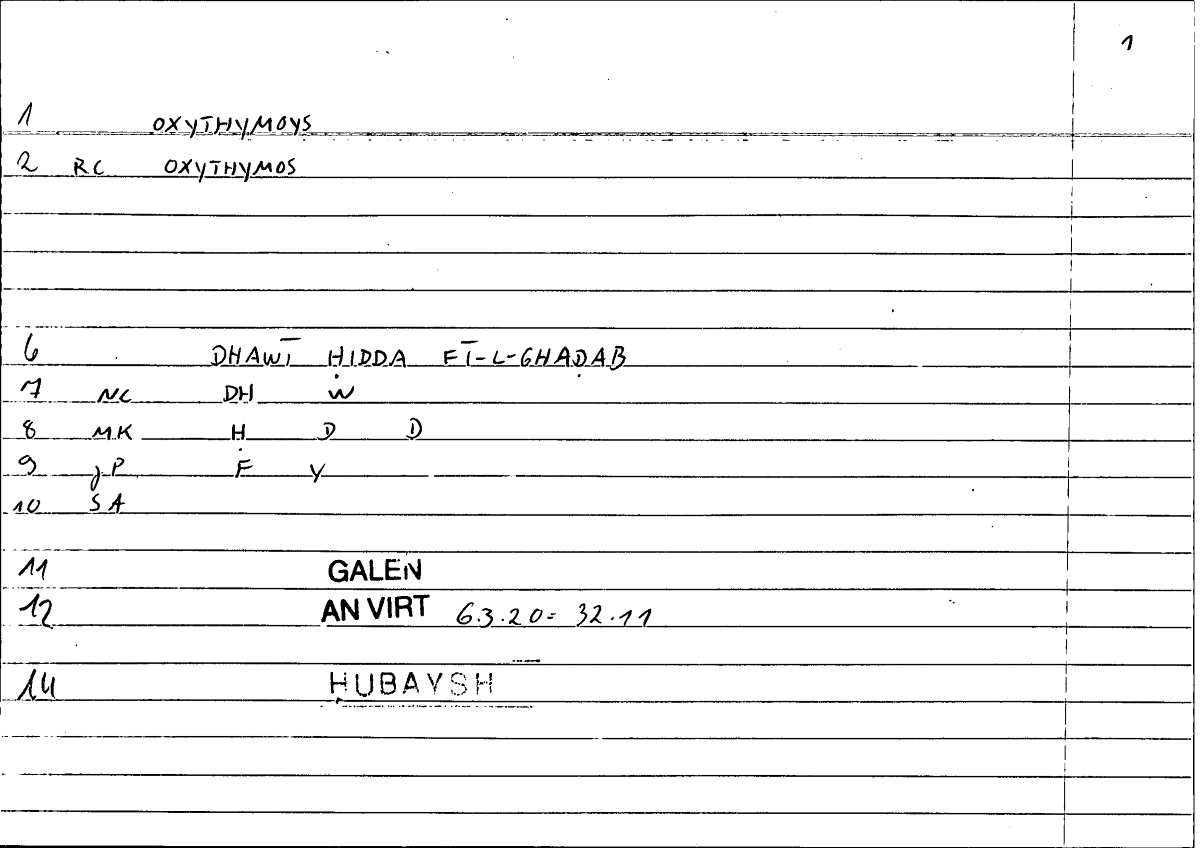 1
1 OXYTHYMOYS
2 RC OXYTHYMOS
6 DHAWĪ ḤIDDA FĪ-L-GHAḌAB
7 NC DH W
8 MK Ḥ D D
9 JP F Y
10 SA
11 GALEN
12 AN VIRT 6.3.20= 32.11
14 ḤUBAYSH